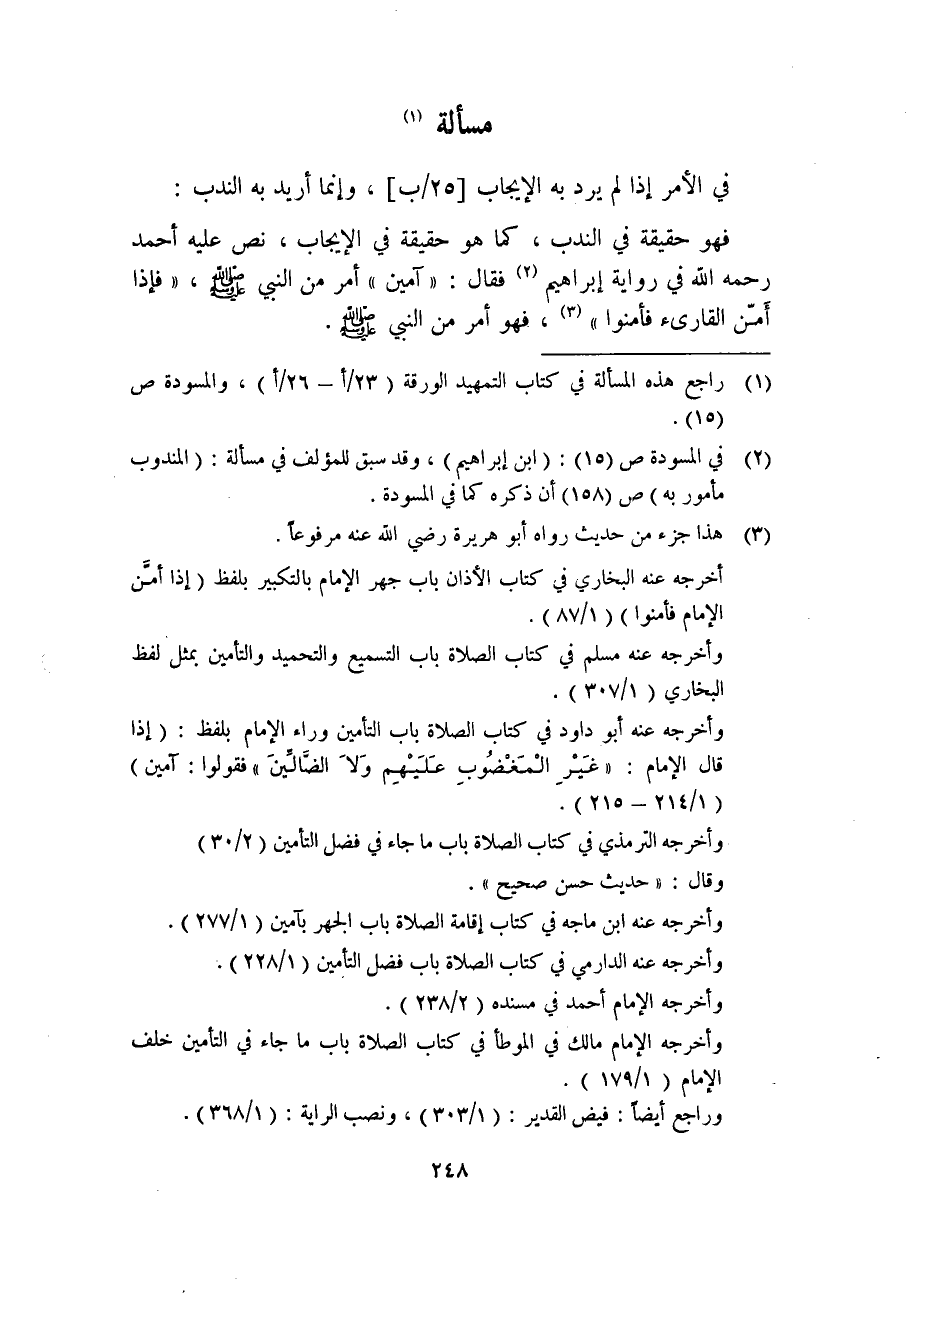 مسألة (١)
في الأمر إذا لم يرد به الإيجاب [٢٥/ب] ، وإنما أريد به الندب :
فهو حقيقة في الندب ، كما هو حقيقة في الإيجاب ، نص عليه أحمد
رحمه الله في رواية إبراهيم (٢) فقال : « آمين » أمر من النبي ﷺ ، « فإذا
أَمّن القارىء فأمنوا » (٣) ، فهو أمر من النبي ﷺ .
(١) راجع هذه المسألة في كتاب التمهيد الورقة ( ٢٣/أ – ٢٦/أ ) ، والمسودة ص
(١٥) .
(٢) في المسودة ص (١٥) : ( ابن إبراهيم ) ، وقد سبق للمؤلف في مسألة : ( المندوب
مأمور به ) ص (١٥٨) أن ذكره كما في المسودة .
(٣) هذا جزء من حديث رواه أبو هريرة رضي الله عنه مرفوعاً .
أخرجه عنه البخاري في كتاب الأذان باب جهر الإمام بالتكبير بلفظ ( إذا أمَّن
الإمام فأمنوا ) ( ٨٧/١ ) .
وأخرجه عنه مسلم في كتاب الصلاة باب التسميع والتحميد والتأمين بمثل لفظ
البخاري ( ٣٠٧/١ ) .
وأخرجه عنه أبو داود في كتاب الصلاة باب التأمين وراء الإمام بلفظ : ( إذا
قال الإمام : « غَيْرِ الْمَغْضُوبِ عَلَيْهِم وَلاَ الضَّالِّينَ » فقولوا : آمين )
( ٢١٤/١ – ٢١٥ ) .
وأخرجه الترمذي في كتاب الصلاة باب ما جاء في فضل التأمين ( ٣٠/٢ )
وقال : « حديث حسن صحيح » .
وأخرجه عنه ابن ماجه في كتاب إقامة الصلاة باب الجهر بآمين ( ٢٧٧/١ ) .
وأخرجه عنه الدارمي في كتاب الصلاة باب فضل التأمين ( ٢٢٨/١ ) .
وأخرجه الإمام أحمد في مسنده ( ٢٣٨/٢ ) .
وأخرجه الإمام مالك في الموطأ في كتاب الصلاة باب ما جاء في التأمين خلف
الإمام ( ١٧٩/١ ) .
وراجع أيضاً : فيض القدير : ( ٣٠٣/١ ) ، ونصب الراية : ( ٣٦٨/١ ) .
٢٤٨